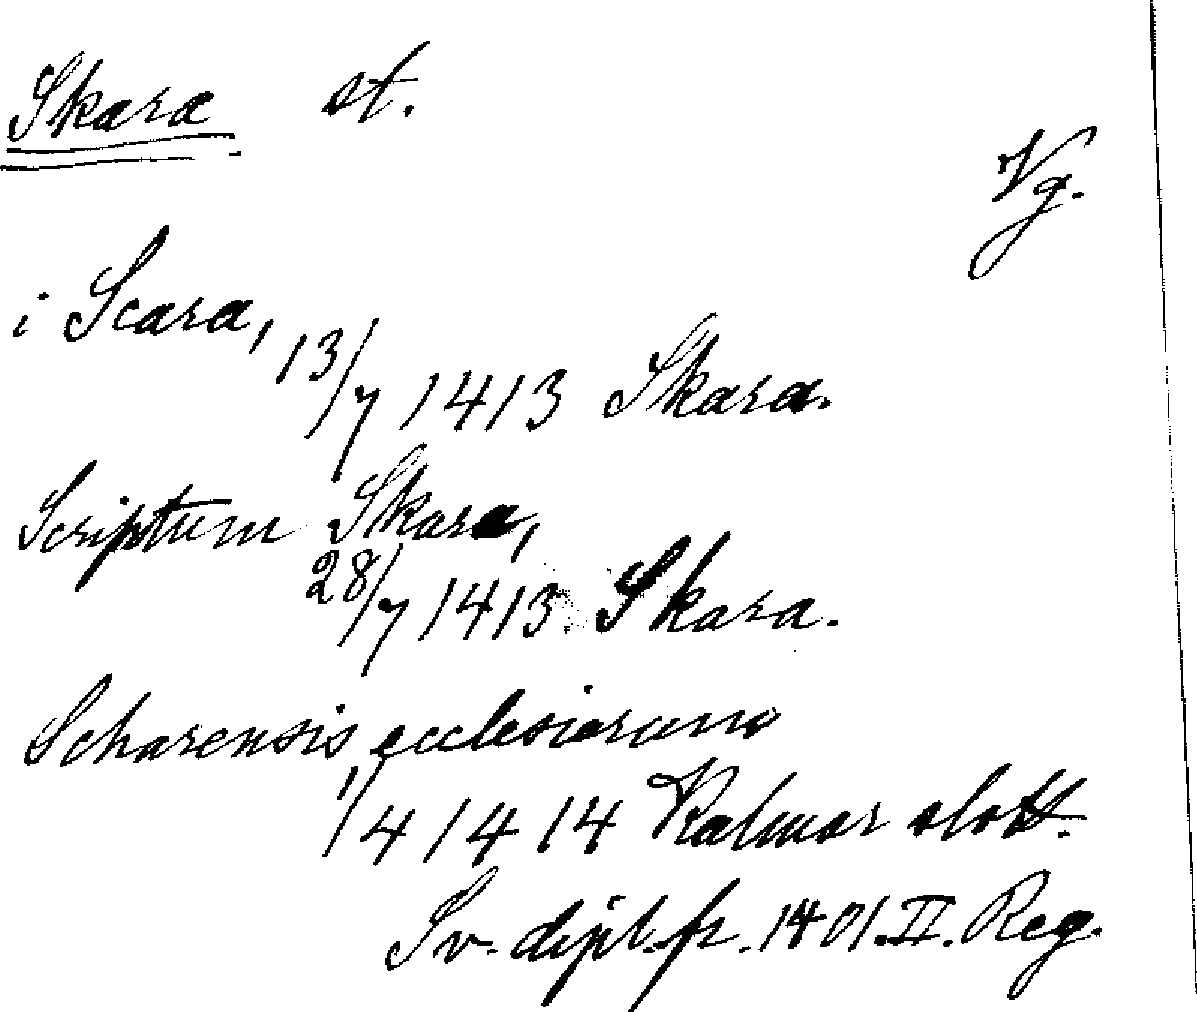 Skara st.
Vg.
i Scara,
13/7 1413 Skara.
Scriptum Skara,
28/7 1413. Skara.
Scharensis ecclesiarum
1/4 1414 Kalmar slott.
Sv. dipl. fr. 1401. II. Reg.